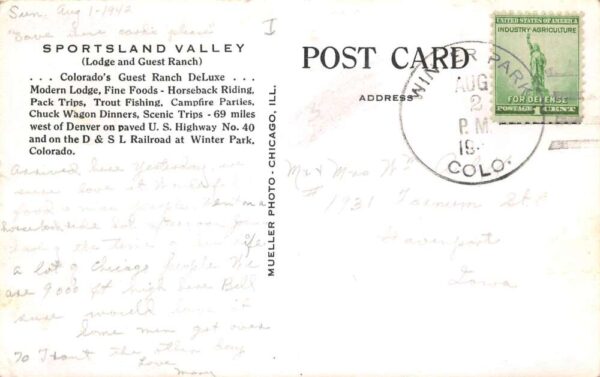 Sun, Aug 1-1942
"Save these cards please"
I
SPORTSLAND VALLEY
(Lodge and Guest Ranch)
. . . Colorado's Guest Ranch DeLuxe . . .
Modern Lodge, Fine Foods - Horseback Riding,
Pack Trips, Trout Fishing, Campfire Parties,
Chuck Wagon Dinners, Scenic Trips - 69 miles
west of Denver on paved U. S. Highway No. 40
and on the D & S L Railroad at Winter Park,
Colorado.
Arrived here yesterday
sure love it
good
horseback
the time of
a lot of Chicago people We
are 9000 ft high here Bill
sure would love it
Some men got over
20 Trout the other day
Love
Mary
MUELLER PHOTO - CHICAGO, ILL.
POST CARD
ADDRESS
WINTER PARK
AUG
2
P M
19
COLO.
UNITED STATES OF AMERICA
INDUSTRY AGRICULTURE
FOR DEFENSE
POSTAGE 1 CENT
Mr & Mrs Wm
# 1931 St
Davenport
Iowa